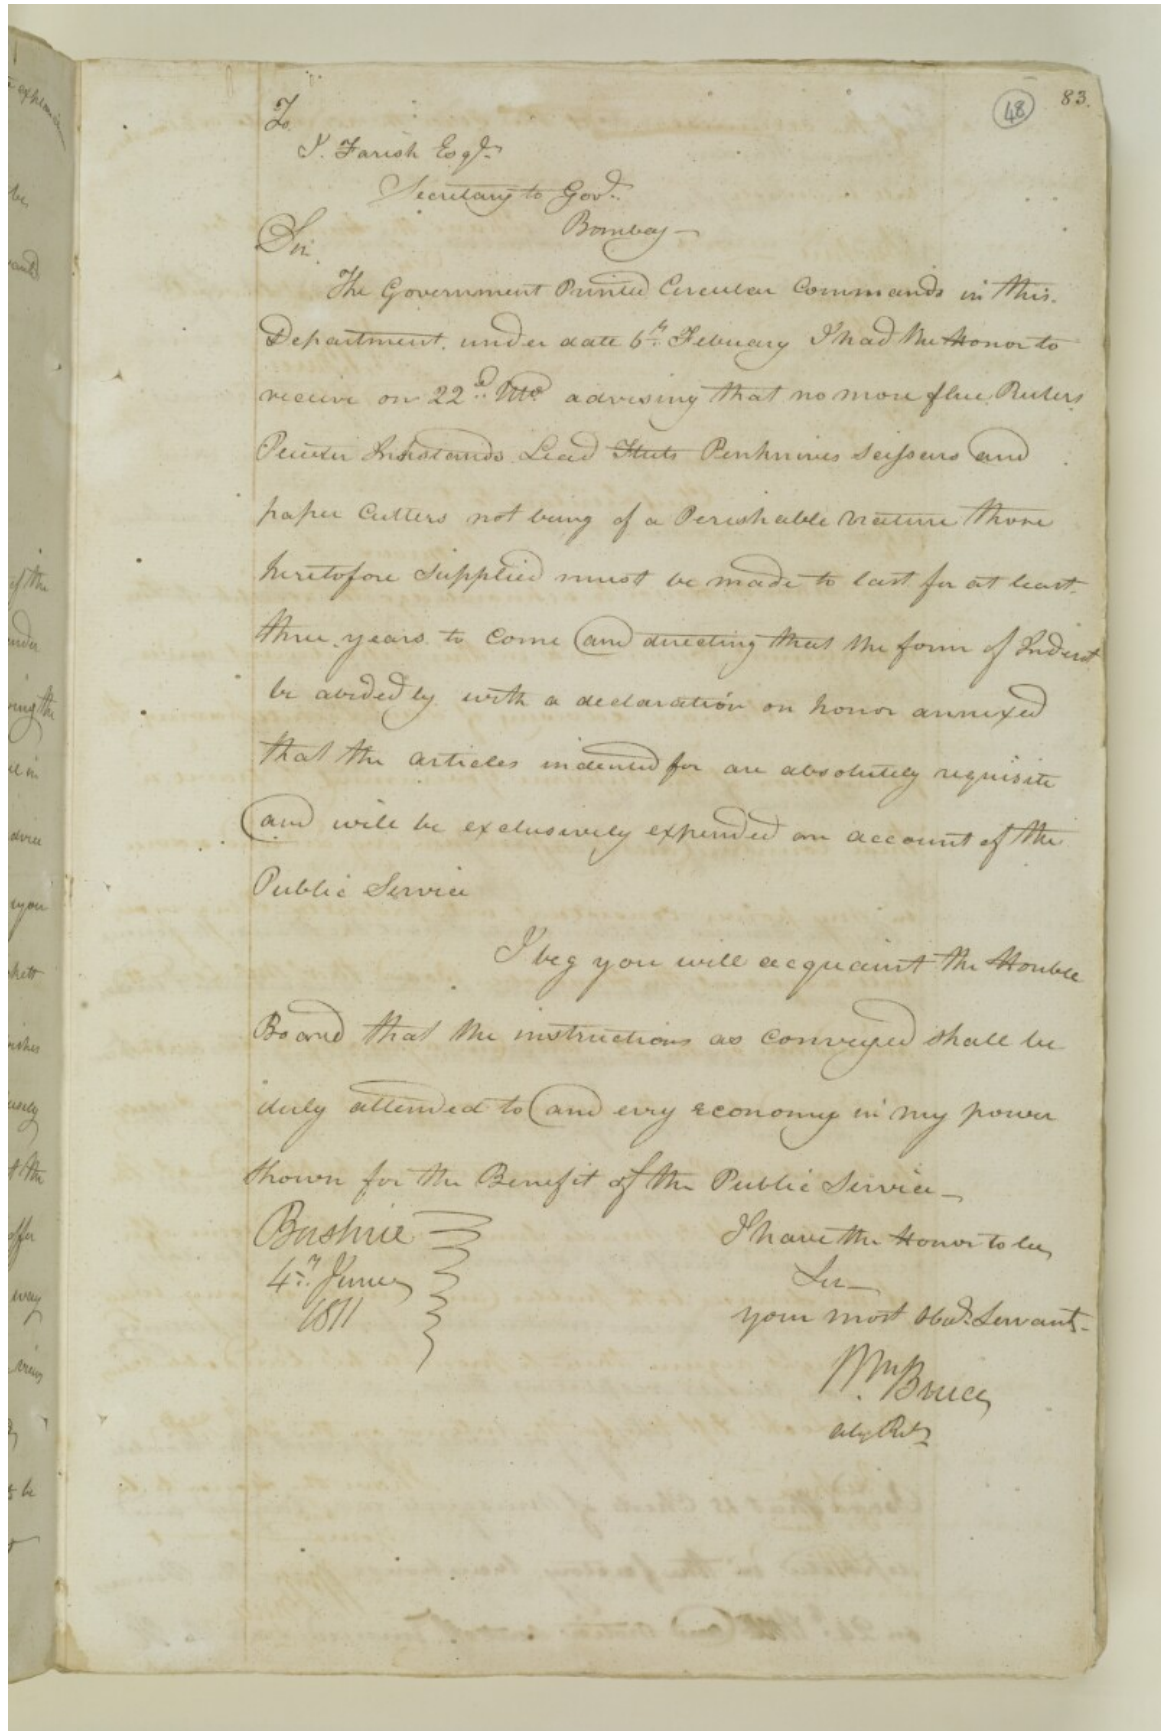 48 83.
To
J. Farish Esqr.
Secretary to Govt.
Bombay
Sir,
The Government Printed Circular Commands in this
Department, under date 6th Febuary I had the Honor to
receive on 22d. Ulto advising that no more Rulers
Pewter Inkstands Lead Penknives Scissars and
paper Cutters not being of a Perishable nature those
heretofore Supplied must be made to last for at least
three years to Come and directing that the form of Indent
be abided by with a declaration on honor annexed
that the articles indented for are absolutely requisite
and will be exclusively expended on account of the
Public Service
I beg you will acquaint the Honble
Board that the instructions as conveyed shall be
duly attended to and evry economy in my power
shown for the Benefit of the Public Service
Bushire
I have the Honor to be,
4th June
Sir
1811
your most Obedt. Servant
Wm. Bruce